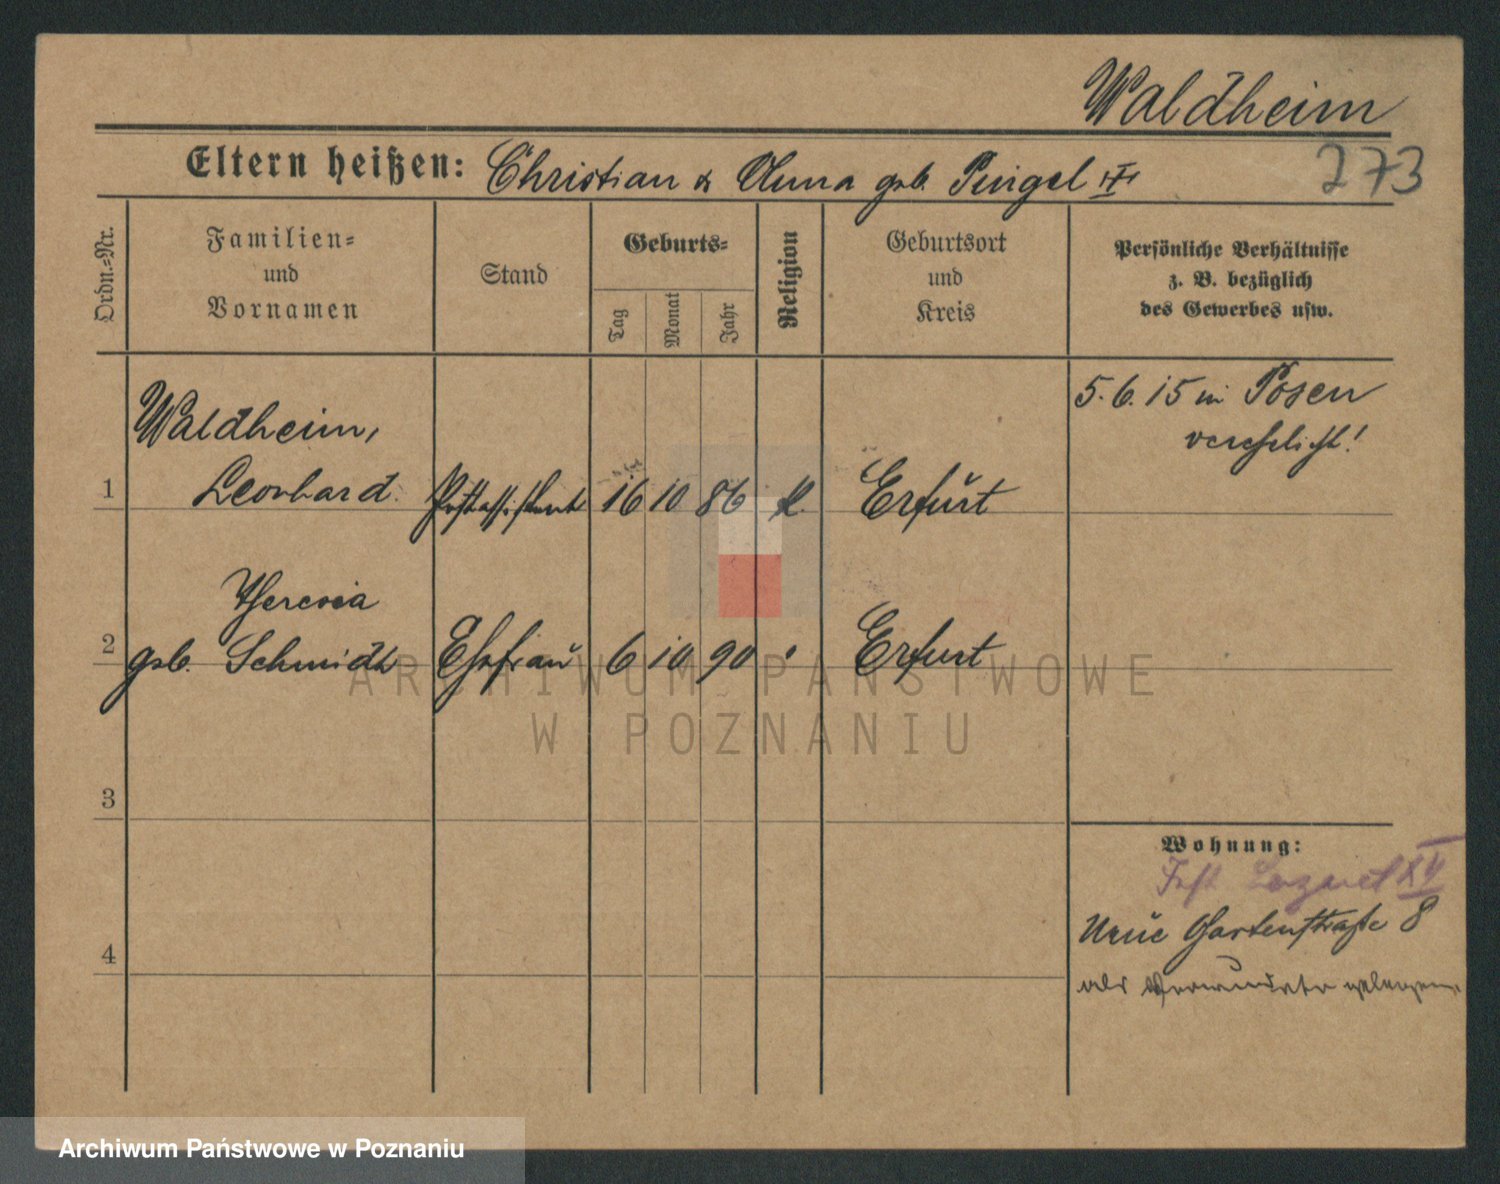 Waldheim
Eltern heißen: Christian & Anna geb. Pingel
273
Ordn.-Nr.
Familien-
und
Vornamen
Stand
Geburts-
Tag
Monat
Jahr
Religion
Geburtsort
und
Kreis
Persönliche Verhältnisse
z. B. bezüglich
des Gewerbes usw.
5.6.15 in Posen
verehelicht!
Waldheim,
1 Leonhard. Postassistent 16 10 86 K. Erfurt
Theresia
2 geb. Schmidt Ehefrau 6 10 90 Erfurt
3
4
Wohnung:
Fest Lazaret XV
Neue Gartenstraße 8
als Verwundeter gelegen
ARCHIWUM PAŃSTWOWE
W POZNANIU
Archiwum Państwowe w Poznaniu